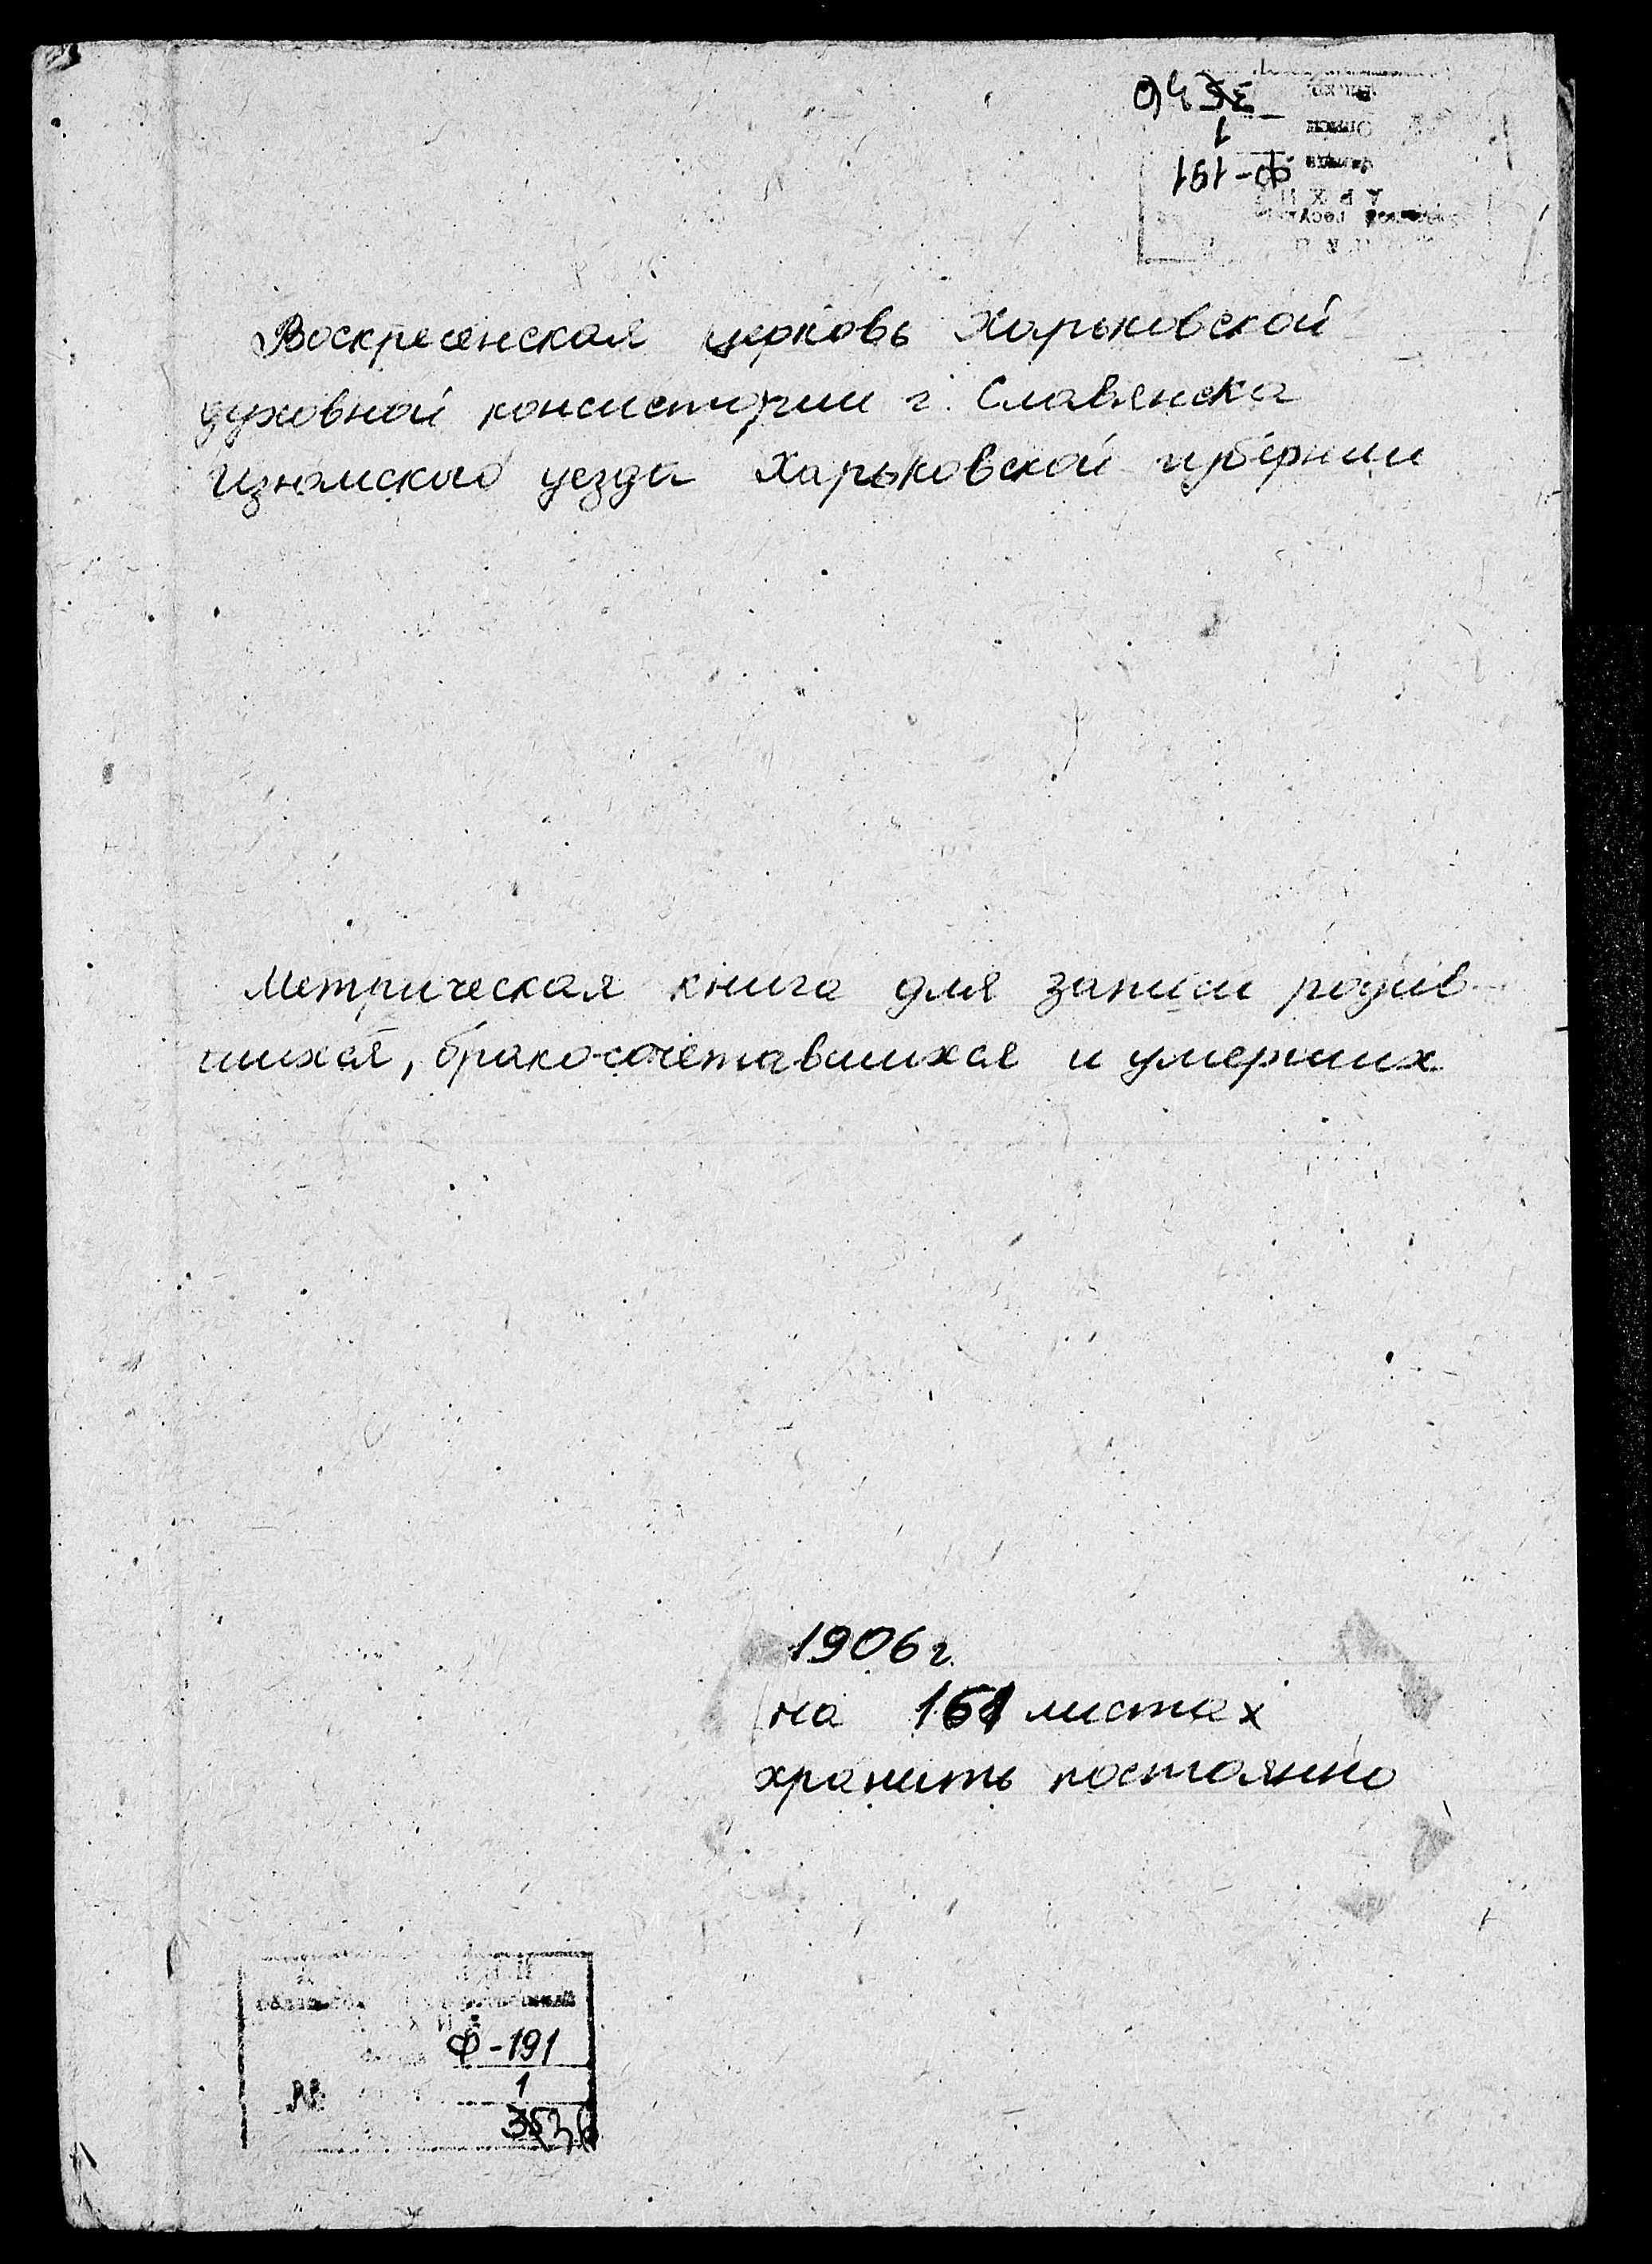 Ф-191
1
Воскресенская церковь Харьковской
духовной консистории г. Славянска
Изюмского уезда Харьковской губернии
Метрическая книга для записи родив-
шихся, бракосочетавшихся и умерших
1906 г.
на 161 листах
хранить постоянно
Ф-191
1
№